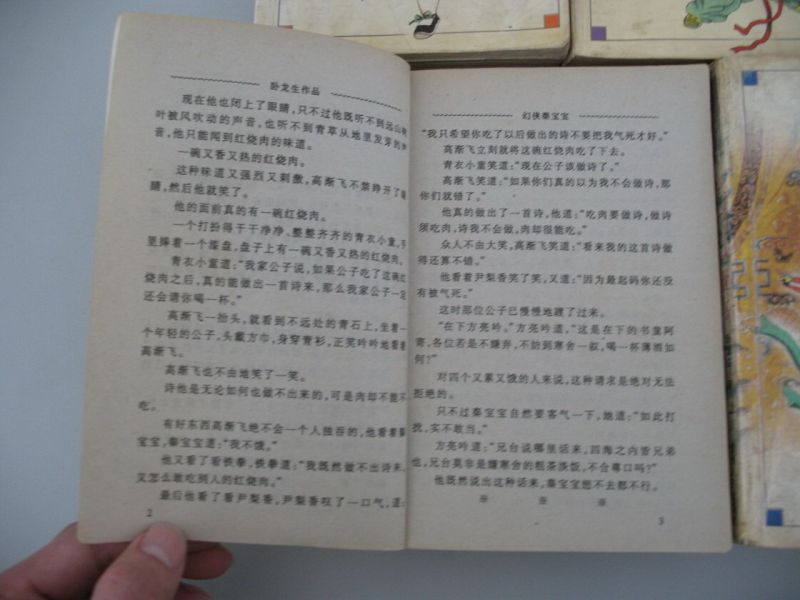 卧龙生作品
现在他也闭上了眼睛,只不过他既听不到远山
叶被风吹动的声音,也听不到青草从地里发芽的声
音,他只能闻到红烧肉的味道。
一碗又香又热的红烧肉。
这种味道又强烈又刺激,高渐飞不禁睁开了眼
睛,然后他就笑了。
他的面前真的有一碗红烧肉。
一个打扮得干干净净、整整齐齐的青衣小童,手
里捧着一个盘,盘子上有一碗又香又热的红烧肉。
青衣小童道:“我家公子说,如果公子吃了这碗红
烧肉之后,真的能做出一首诗来,那么我家公子一定
还会请你喝一杯。”
高渐飞一抬头,就看到不远处的青石上,坐着一
个年轻的公子,头戴方巾,身穿青衫,正笑吟吟地看着
高渐飞。
高渐飞也不由地笑了一笑。
诗他是无论如何也做不出来的,可是肉却不能不
吃。
有好东西高渐飞绝不会一个人独吞的,他看着秦
宝宝,秦宝宝道:“我不饿。”
他又看了看铁拳,铁拳道:“我既然做不出诗来,
又怎么敢吃别人的红烧肉。”
最后他看了看尹梨香,尹梨香叹了一口气,道:
2
幻侠秦宝宝
“我只希望你吃了以后做出的诗不要把我气死才好。”
高渐飞立刻就将这碗红烧肉吃了下去。
青衣小童笑道:“现在公子该做诗了。”
高渐飞笑道:“如果你们真的以为我不会做诗,那
你们就错了。”
他真的做出了一首诗,他道:“吃肉要做诗,做诗
须吃肉,诗我不会做,肉却很能吃。”
众人不由大笑,高渐飞笑道:“看来我的这首诗做
得还算不错。”
他看着尹梨香笑了笑,又道:“因为最起码你还没
有被气死。”
这时那位公子已慢慢地踱了过来。
“在下方亮吟。”方亮吟道,“这是在下的书童阿
寄,各位若是不嫌弃,不妨到寒舍一叙,喝一杯薄酒如
何?”
对四个又累又饿的人来说,这种请求是绝对无法
拒绝的。
只不过秦宝宝自然要客气一下,她道:“如此打
扰,实不敢当。”
方亮吟道:“兄台说哪里话来,四海之内皆兄弟
也,兄台莫非是嫌寒舍的粗茶淡饭,不合尊口吗?”
他既然说出这种话来,秦宝宝想不去都不行。
※ ※ ※
3